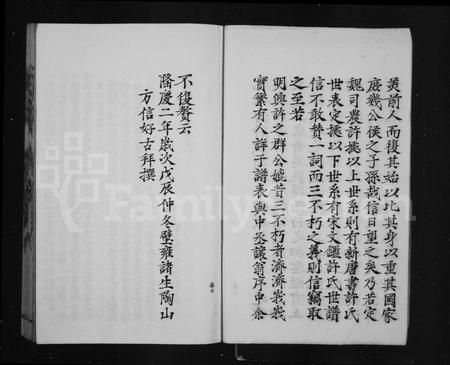 美前人而復其始以比其身以重其國家
庶幾公侯之子孫哉信日望之矣乃若定
魏司農許據以上世系則有新唐書許氏
世表定據以下世系有宋文鑑許氏世譜
信不敢贊一詞而三不朽之義則信竊取
之至若
明興許之群公媲昔三不朽者濟濟哉哉
實繁有人詳于譜表與中丞讓翁序中余
不復贅云
隆慶二年歲次戊辰仲冬壁雍諸生陶山
方信好古拜撰
FamilySearch